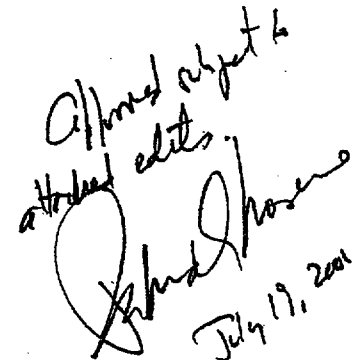 Approved subject to
attached edits.
July 19, 2001